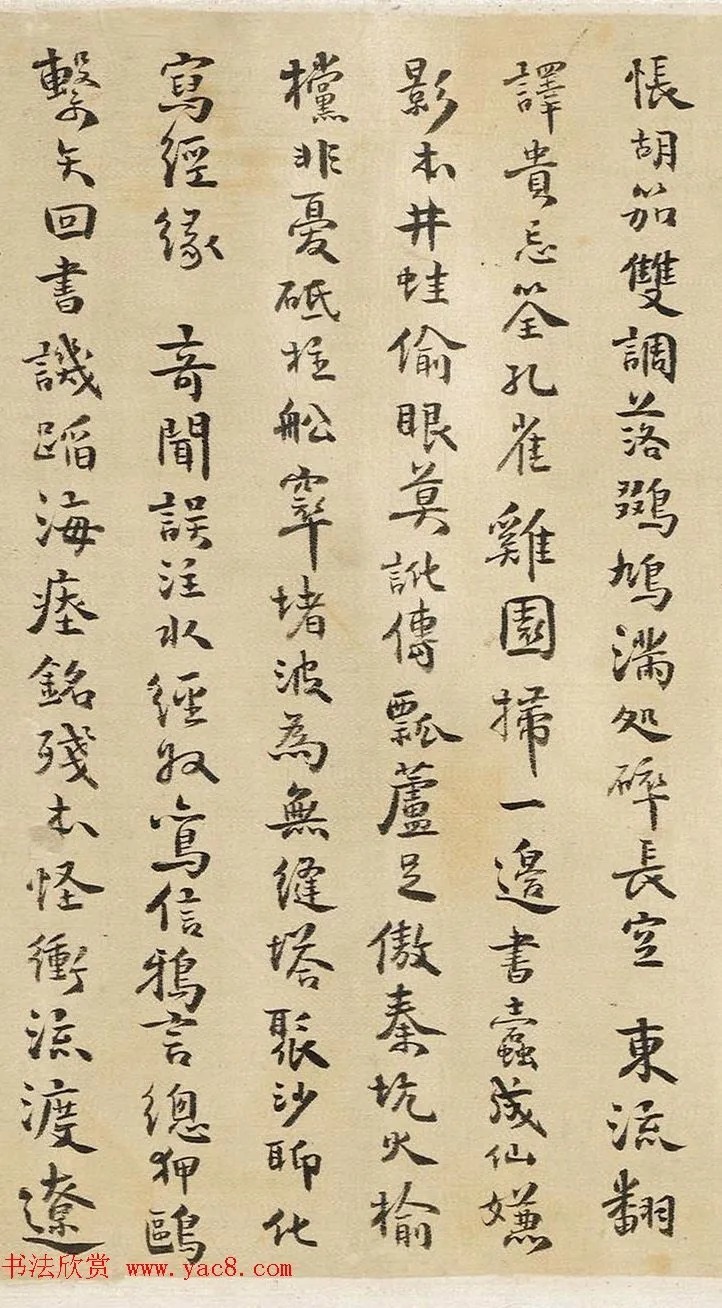 悵胡笳雙調落鵶鳩滿处碎長空 東流翻
譯貴忘筌孔雀雞園掃一邊書蠹成仙嫌
影本井蛙偷眼莫訛傳瓢蘆足傲秦坑火榆
欓非憂砥柱舩窣堵波為無縫塔聚沙聊化
寫經緣 奇聞誤注水經奴寫信鴉言總狎鷗
繫矢回書譏蹈海瘞銘殘本怪衝流渡遼
书法欣赏 www.yac8.com